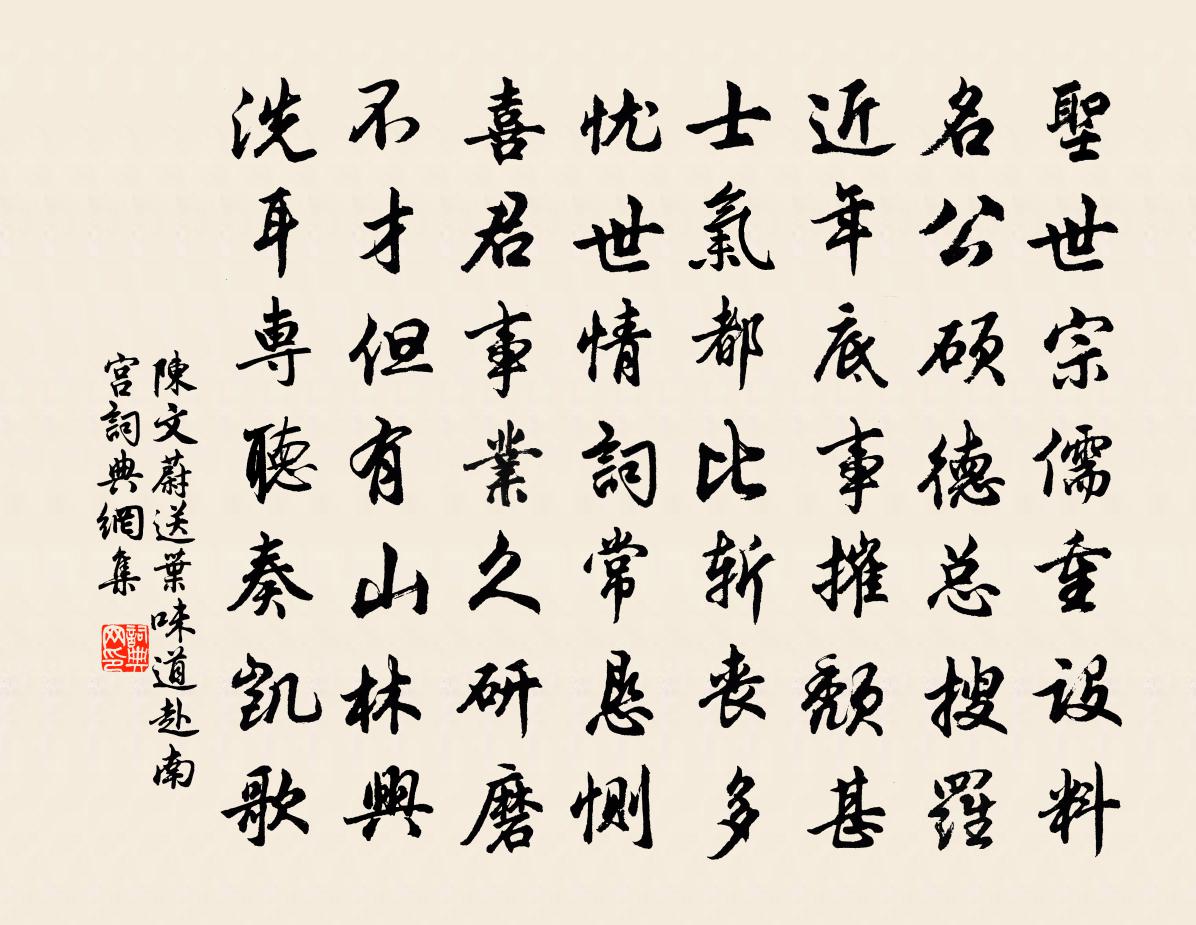 聖世宗儒重設科
名公碩德总搜羅
近年底事摧頹甚
士氣都比斲喪多
忧世情詞常恳惻
喜君事業久研磨
不才但有山林興
洗耳専聽奏凱歌
陳文蔚送葉味道赴南
宮詞典網集
詞典网印